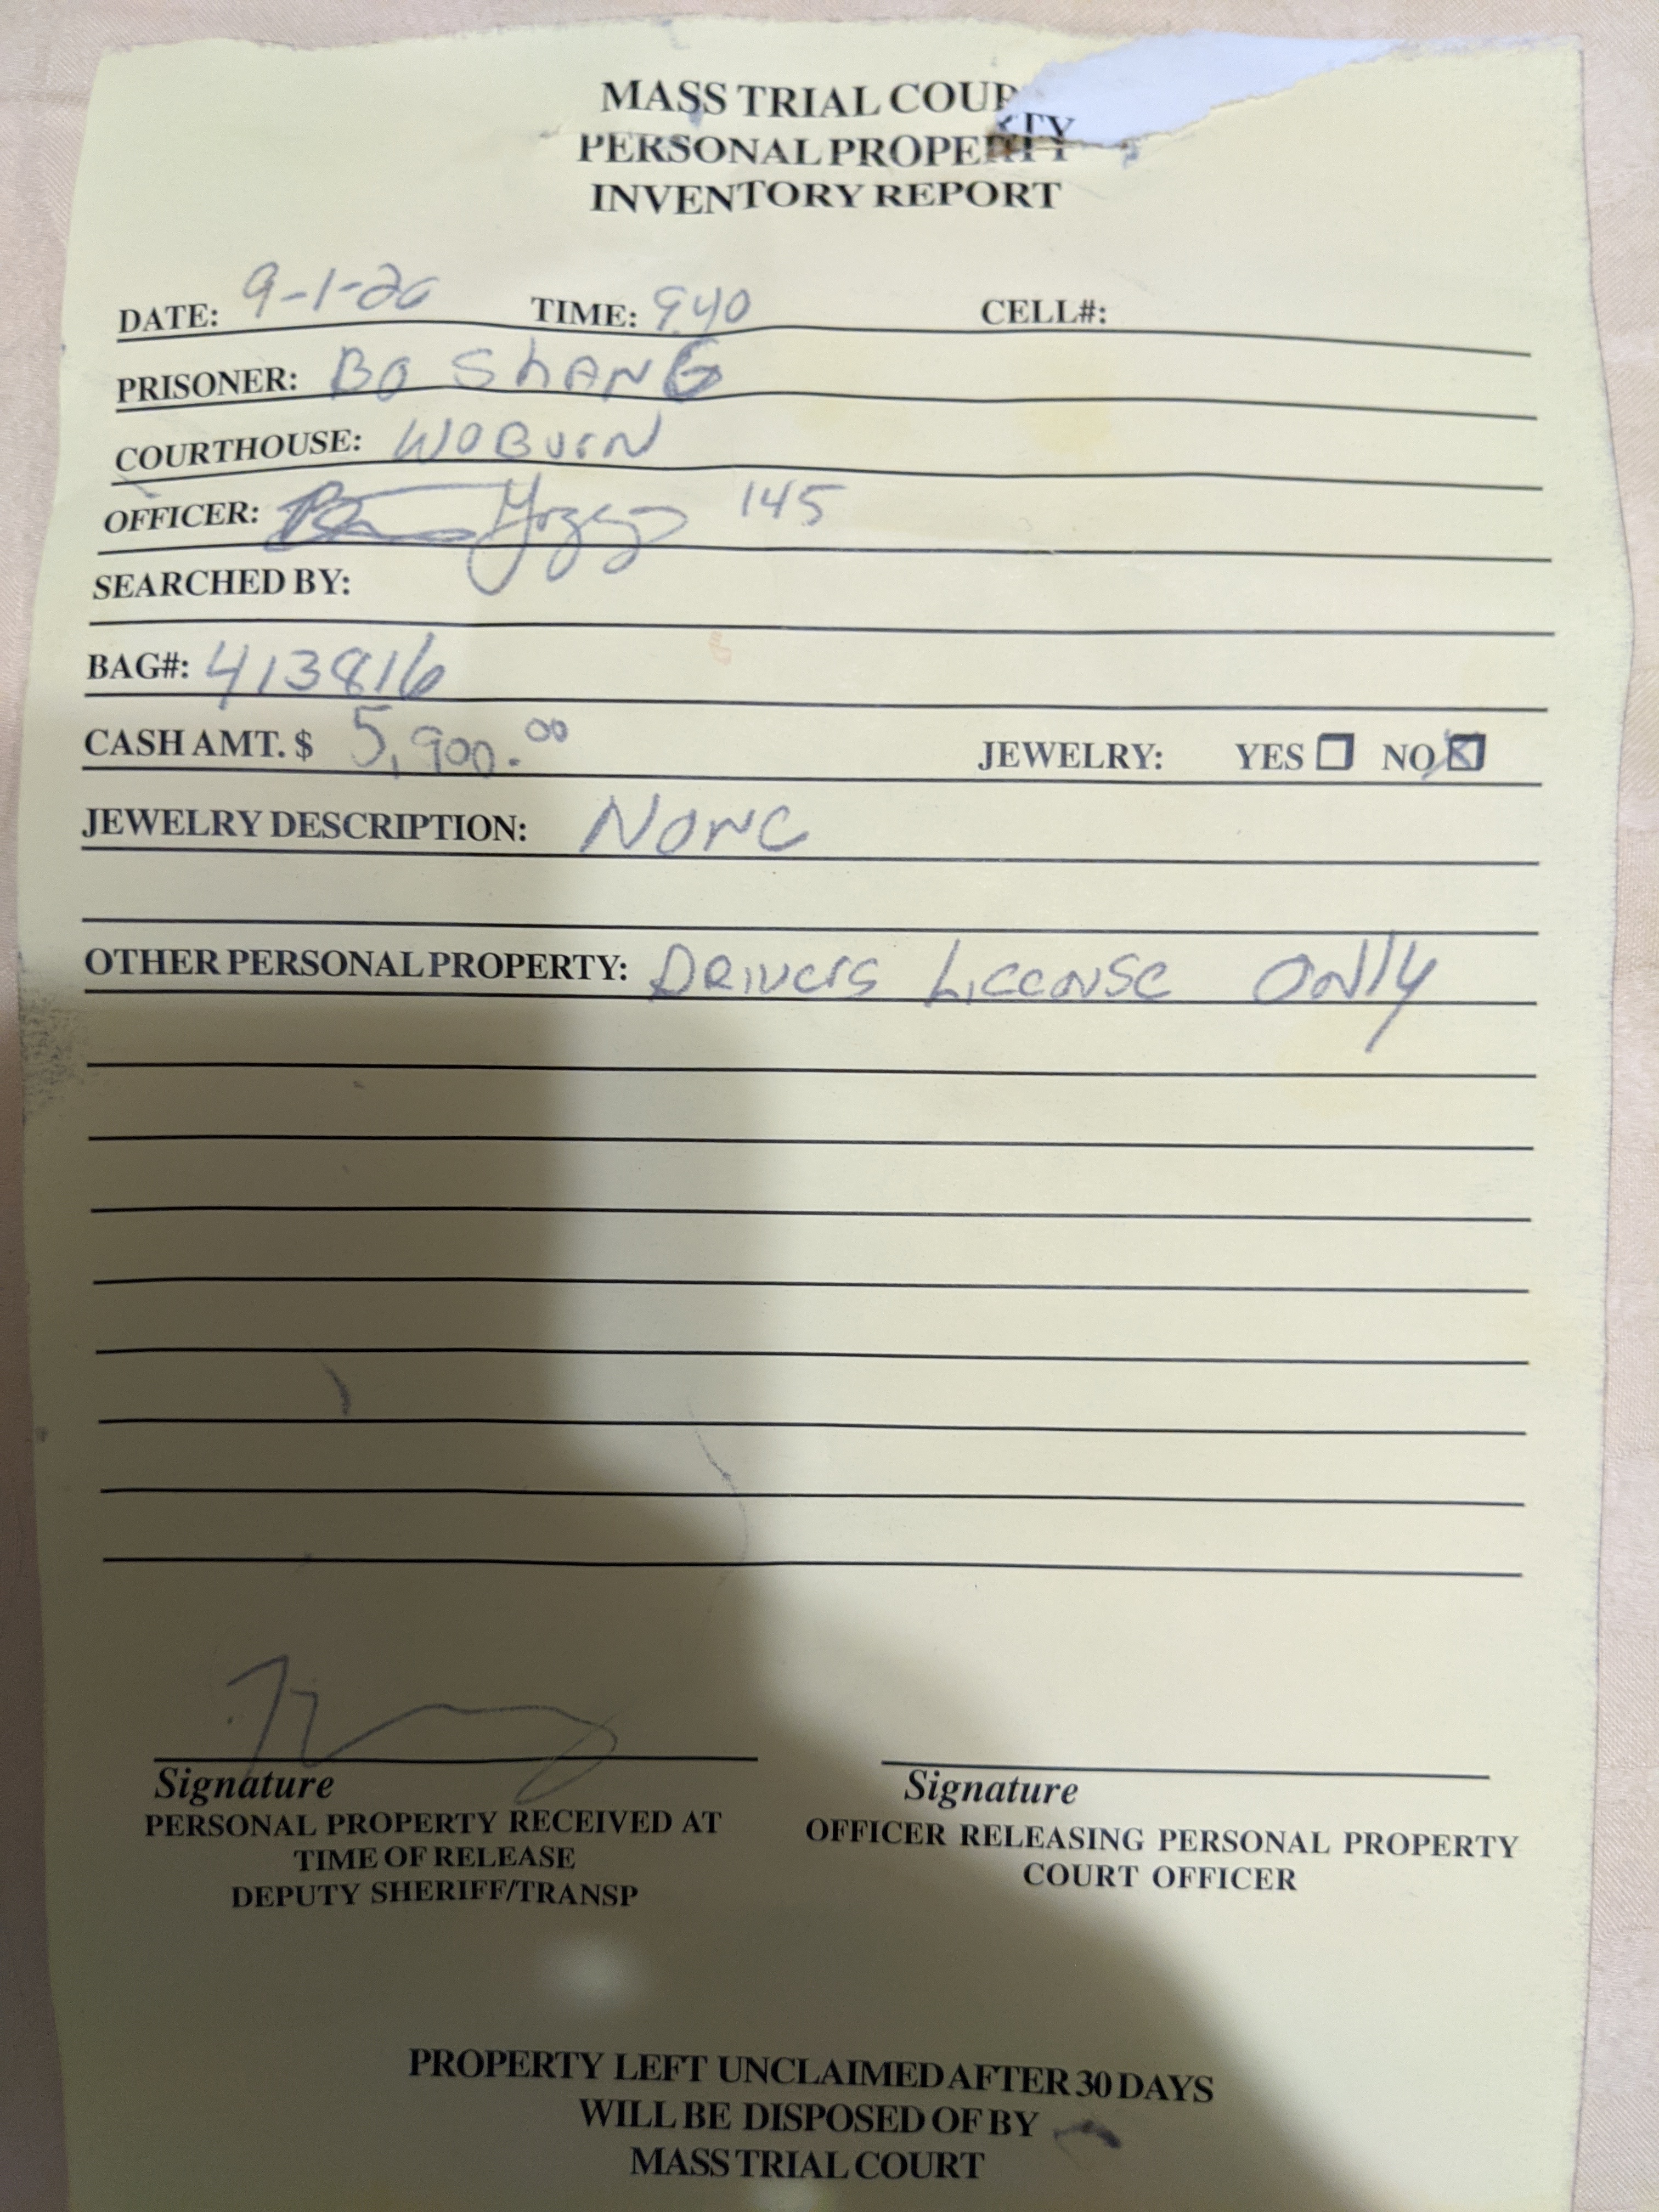 MASS TRIAL COUR
PERSONAL PROPERTY
INVENTORY REPORT
DATE: 9-1-20 TIME: 9:40 CELL#:
PRISONER: BO ShANG
COURTHOUSE: WOBURN
OFFICER: 145
SEARCHED BY:
BAG#: 413816
CASH AMT. $ 5,900.00 JEWELRY: YES NO
JEWELRY DESCRIPTION: NONE
OTHER PERSONAL PROPERTY: DRIVERS LICENSE ONLY
Signature Signature
PERSONAL PROPERTY RECEIVED AT
TIME OF RELEASE
DEPUTY SHERIFF/TRANSP
OFFICER RELEASING PERSONAL PROPERTY
COURT OFFICER
PROPERTY LEFT UNCLAIMED AFTER 30 DAYS
WILL BE DISPOSED OF BY
MASS TRIAL COURT